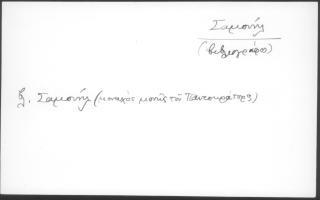 Σαμουήλ
(βιβλιογράφος)
βλ. Σαμουήλ (μοναχὸς μονῆς τοῦ Παντοκράτορος)